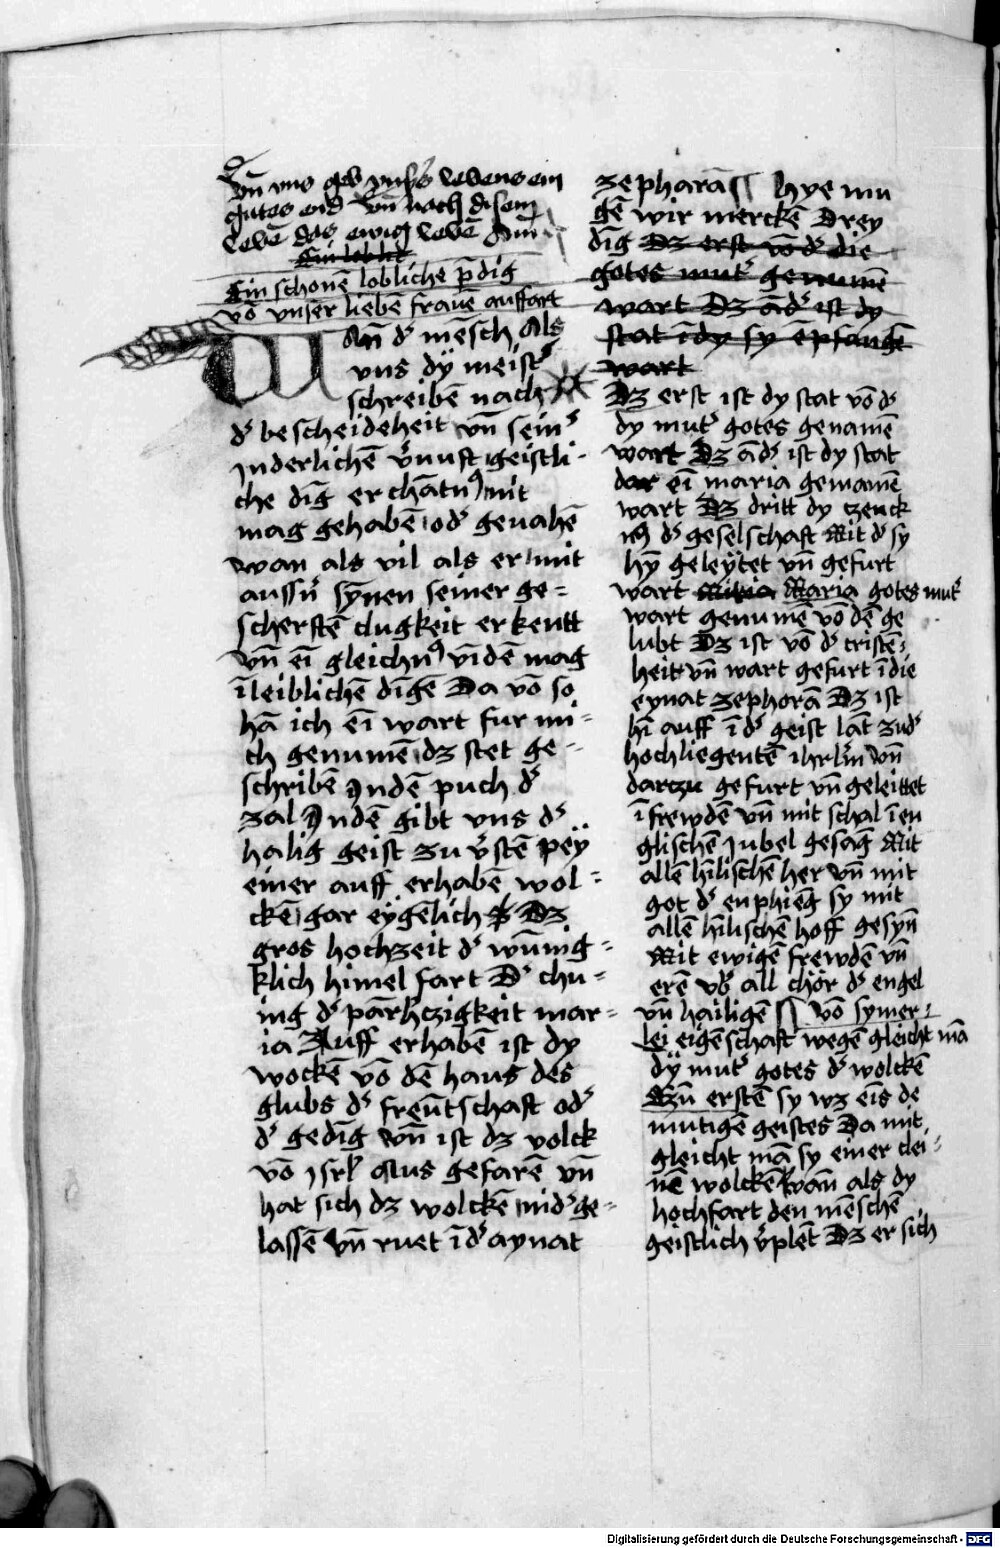 Vn̄ vns geb vnsers lebens ein
gutes end vn̄ nach disem
lebē das ewig lebē Am̄
Ein loblic
Ein schonē lobliche p̄dig
vō vnser liebē frawē auffart
WAn̄ dʾ mēsch als
vns dÿ meistʾ
schreibē nach
dʾ bescheideheit vn̄ seinʾ
Jnderlichē vʾnust geistli-
che dīg erchātn⁹ nit
mag gehabē odʾ gevahē
wan als vil als er mit
aussʾn sÿnen seiner ge=
scherftē clugkeit erkentt
vn̄ eī gleichn⁹ vīdē mag
ī leiblichē dīgē Da vō so
hā ich eī wart fur mi=
ch genumē dz stet ge=
schribē Jndē puch dʾ
zal Jndē gibt vns dʾ
halig geist zu vʾstē peÿ
einer auff erhabē wol=
ckē gar eÿgēlich Dz
gros hochzeit dʾ wūnig=
klich himel fart Dʾ chu=
nig dʾ pārhczigkeit mar=
ia Auff erhabē ist dy
wockē vō dē haus des
glubs dʾ freūtschaft odʾ
dʾ gedīg vn̄ ist dz volck
vō jsrl aus gefarē vn̄
hat sich dz wolckē nidʾge=
lassē vn̄ ruet ī dʾ aynat
zepharā hye mu
gē wir merckē Drey
dīg Dz erst vō dʾ die
gotes mutʾ genumē
wart Dz ādʾ ist dy
stat ī dy sy ēpfangē
wart
Dz erst ist dy stat vō dʾ
dy mutʾ gotes genamē
wart Dz ādʾ ist dy stat
dar eī maria genamē
wart Dz dritt dy czeuck
dʾ geselschaft Mit dʾ sy
hȳ geleÿtet vn̄ gefurt
wart Maria gotes mutʾ
wart genumē vō dē ge
lubt Dz ist vō dʾ cristē=
heit vn̄ wart gefurt ī die
eynat zephorā Dz ist
hī auff ī dʾ geist lāt zudʾ
hochliegentē ihrlm̄ vn̄
darczu gefurt vn̄ geleittet
ī frewdē vn̄ mit schal ī en
glischē Jubel gesāg Mit
allē hīlischē her vn̄ mit
got dʾ enphieng sy mit
allē hīlischē hoff gesyn̄
Mit ewigē frewdē vn̄
erē vbʾ all chör dʾ engel
vn̄ hailigē vō symer=
lei eigēschaft wegē gleicht mā
dÿ mutʾ gotes dʾ wolckē
Czū erstē sy wz eīs de
mutigē geistes Da mit
gleicht mā sy einer clei=
nē wolckē wān als dy
hochfart den mēschē
geistlich vʾplet Dz er sich
Digitalisierung gefördert durch die Deutsche Forschungsgemeinschaft - DFG